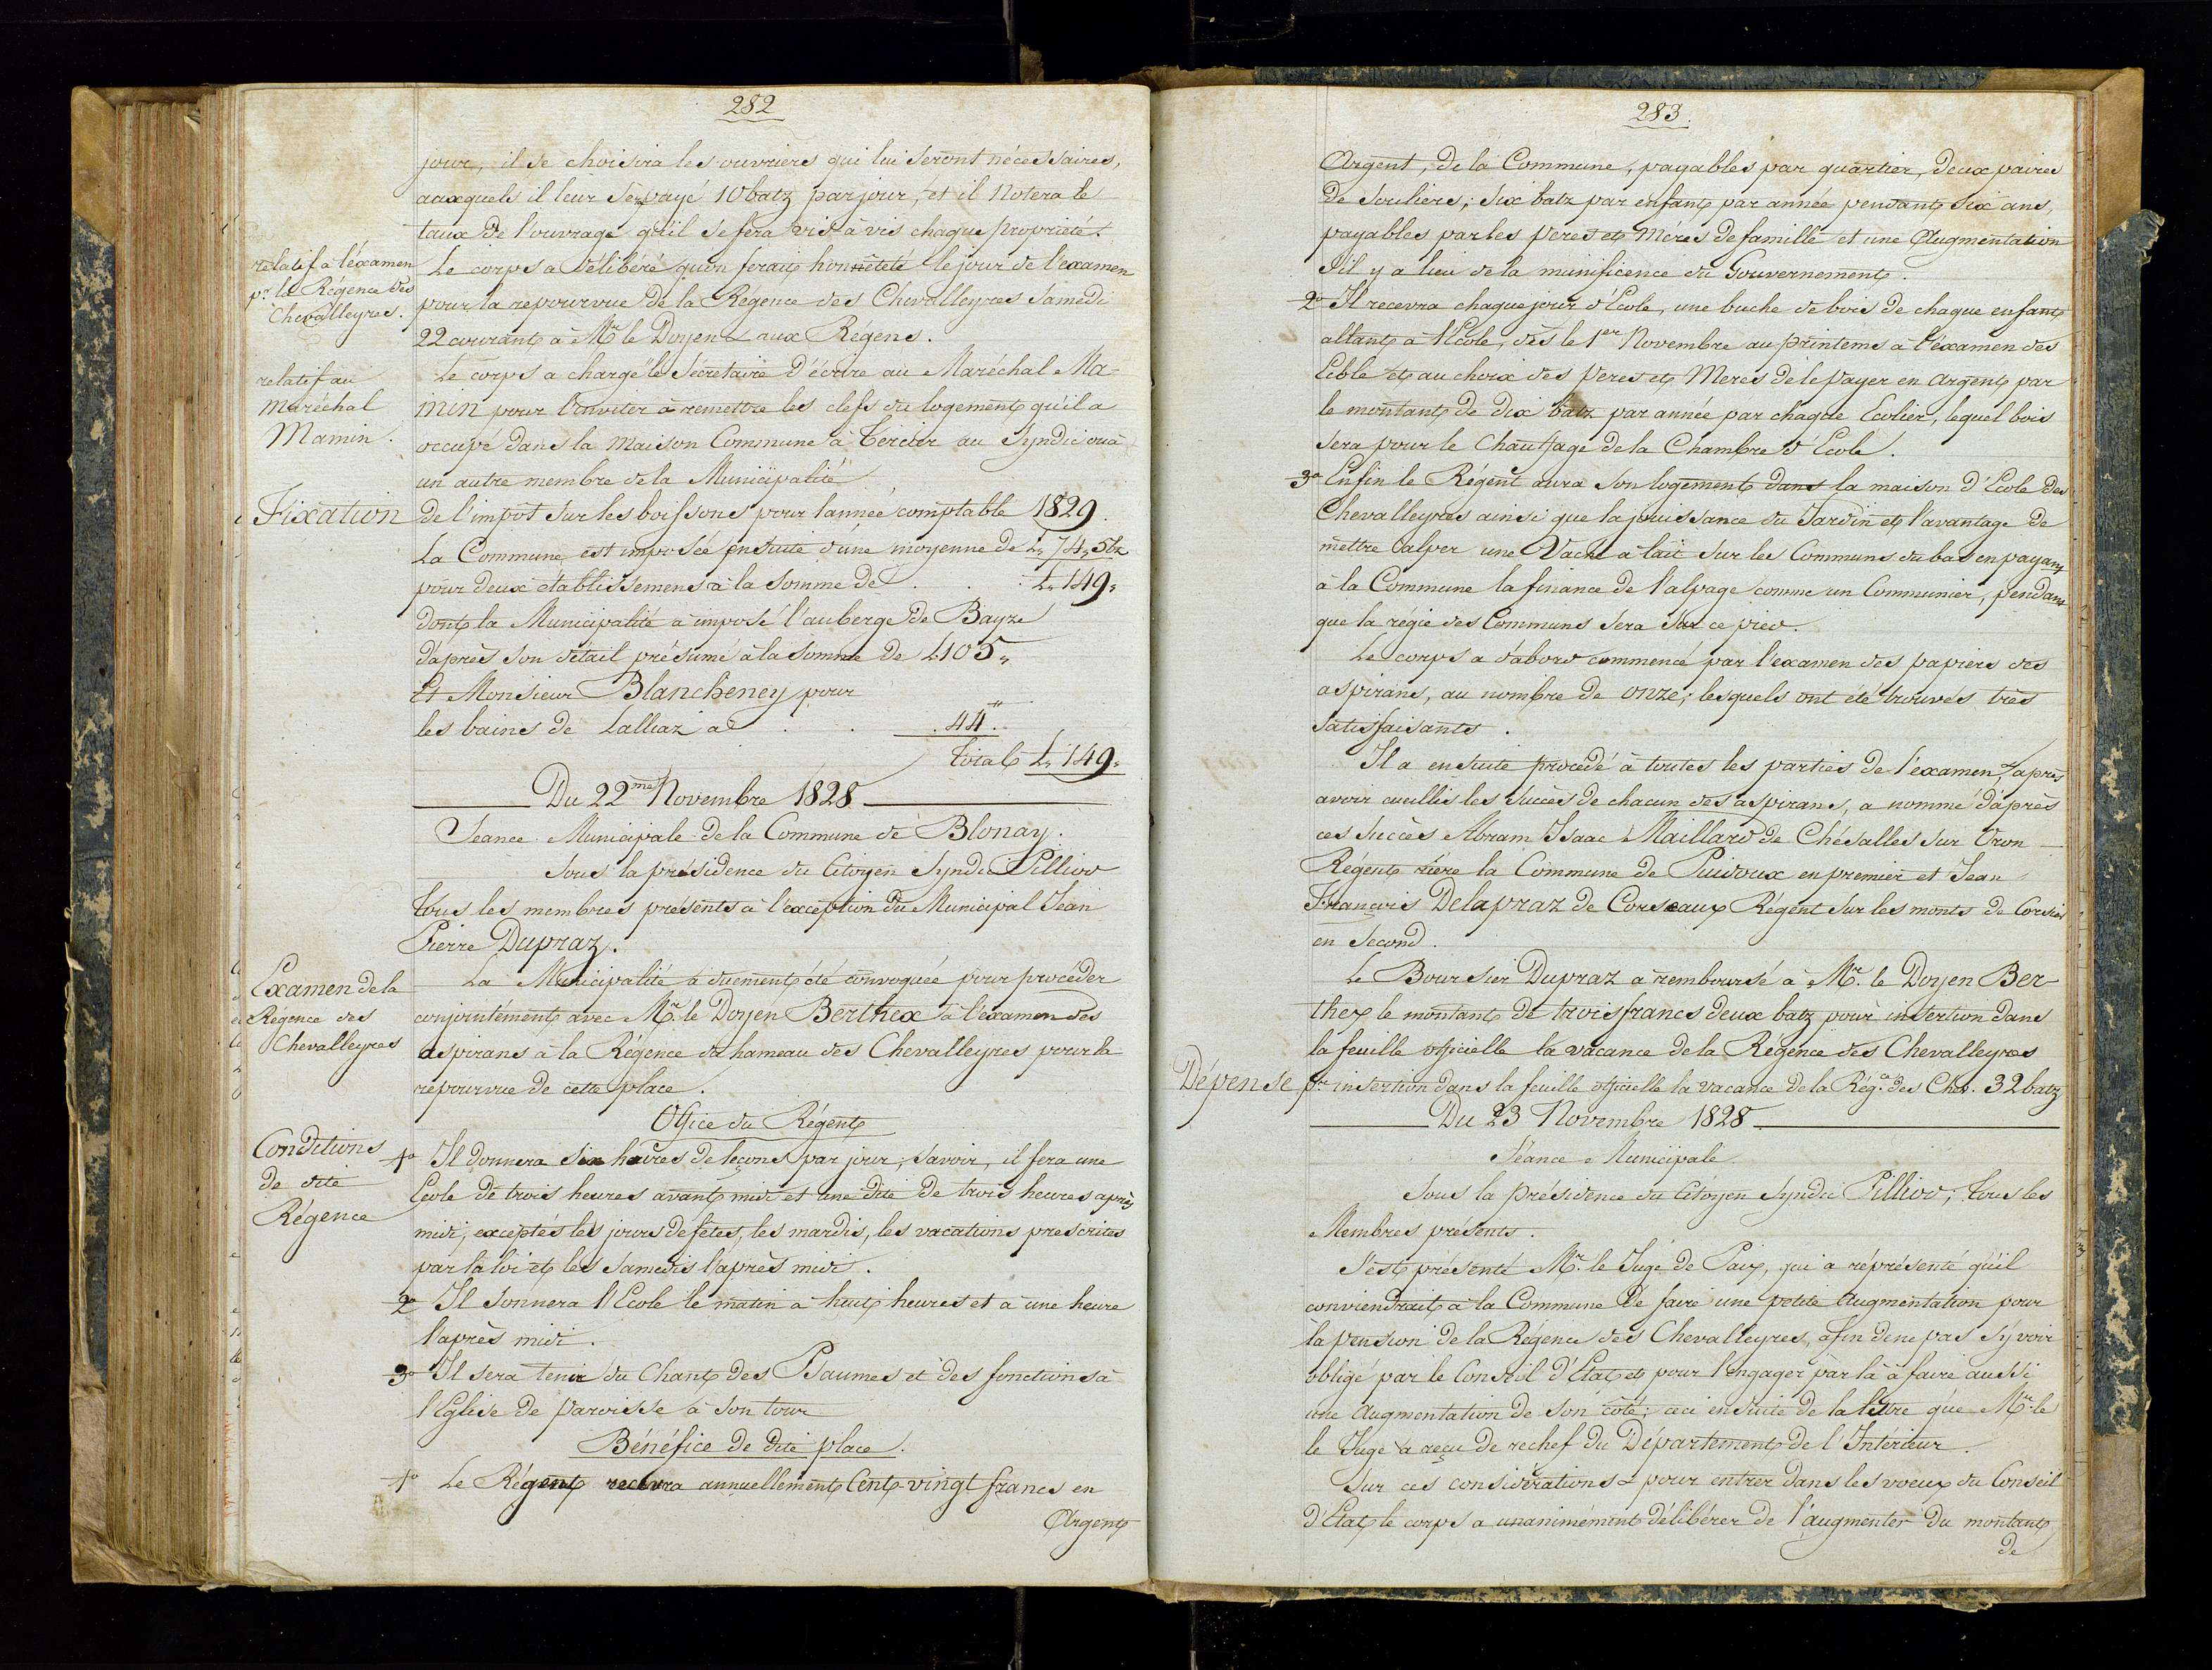 282
jour, il se choisira les ouvriers qui lui seront nécessaires,
auxquels il leur sera payé 10 batz par jour, et il notera le
taux de l'ouvrage qu'il se fera vis à vis chaque propriété.
relatif à l'éxamen
pr. la Régence des
Chevalleyres.
Le corps a délibéré qu'on ferait honnêteté le jour de l'examen
pour la repourvue de la Régence des Chevalleyres Samedi
22 courant à Mr. le Doyen & aux Régens.
relatif au
Maréchal
Mamin.
Le corps a chargé le Sécrétaire d'écrire au Maréchal Ma-
min pour l'inviter à remettre les clefs du logement qu'il a
occupé dans la Maison Commune à Tercier au Syndic ou à
un autre membre de la Municipalité
Fixation de l'impôt sur les boissons pour l'année comptable 1829.
La Commune est imposée ensuite d'une moyenne de L. 74,, 5 bz
pour deux établissemens à la somme de . . . L. 149,,
dont la Municipalité a imposé l'auberge de Bayze
d'après son détail présumé à la somme de L 105,,
Et Monsieur Blancheney pour
les bains de Lalliaz à . . . 44
Total L. 149,,
Du 22me Novembre 1828
Séance Municipale de la Commune de Blonay.
Sous la présidence du Citoyen Syndic Pilliod
Tous les membres présents à l'exception du Municipal Jean
Pierre Dupraz.
Examen de la
Régence des
Chevalleyres
La Municipalité a duement été convoquée pour procéder
conjointément avec Mr. le Doyen Berthex à l'éxamen des
aspirans à la Régence du hameau des Chevalleyres pour la
repourvue de cette place.
Office du Régent
Conditions
de dite
Régence
1° Il donnera six heures de leçons par jour; savoir, il fera une
Ecole de trois heures avant midi et une dite de trois heures après
midi, exceptés les jours de fêtes, les mardis, les vacations prescrites
par la loi et les Samedis l'après midi.
2° Il sonnera l'Ecole le matin à huit heures et à une heure
l'après midi.
3° Il sera tenu du Chant des Psaumes et des fonctions à
l'Eglise de paroisse à son tour
Bénéfice de dite place.
1° Le Régent recevra annuellement Cent-vingt francs en
Argent
283.
Argent, de la Commune, payables par quartier, deux paires
de souliers; six batz par enfant par année pendant six ans,
payables par les peres et Méres de famille et une Augmentation
s'il y a lieu de la munificence du Gouvernement.
2° Il recevra chaque jour d'Ecole, une buche de bois de chaque enfant
allant à l'Ecole, dès le 1er Novembre au printems à l'éxamen des
Ecole et au choix des peres et Meres de le payer en argent par
le montant de dix batz par année par chaque Ecolier, lequel bois
sera pour le chauffage de la Chambre d'Ecole.
3° Enfin le Régent aura son logement dans la maison d'Ecole des
Chevalleyres ainsi que la jouissance du Jardin et l'avantage de
mettre alper une Vache à lait sur les Communs du bas en payant
à la Commune la finance de l'alpage comme un Communier, pendant
que la régie des Communs sera sur ce pied.
Le corps a d'abord commencé par l'examen des papiers des
aspirans, au nombre de onze; lesquels ont été trouvés très
satisfaisants.
Il a ensuite procédé à toutes les parties de l'éxamen, & après
avoir cueillis les succès de chacun des aspirans, a nommé d'après
ces succès Abram Isaac Maillard de Chésalles sur Oron
Régent rière la Commune de Puidoux en premier et Jean
François Delapraz de Corseaux Régent sur les monts de Corsier
en second.
Le Boursier Dupraz a remboursé à Mr. le Doyen Ber-
thex le montant de trois francs deux batz pour insertion dans
la feuille officielle la vacance de la Régence des Chevalleyres
Dépense pr. insertion dans la feuille officielle la vacance de la Rég.ce des Chev. 32 batz
Du 23 Novembre 1828
Séance Municipale
Sous la présidence du Citoyen Syndic Pilliod; tous les
Membres présents.
S'est présenté Mr. le Juge de Paix, qui a réprésenté qu'il
conviendrait à la Commune de faire une petite Augmentation pour
la pension de la Régence des Chevalleyres, afin de ne pas s'y voir
obligé par le Conseil d'Etat et pour l'engager par là à faire aussi
une Augmentation de son côté; ceci ensuite de la lettre que Mr. le
le Juge a reçu de rechef du Département de l'Intérieur.
Sur ces considérations & pour entrer dans les voeux du Conseil
d'Etat le corps a unanimément délibérer de l'augmenter du montant
de